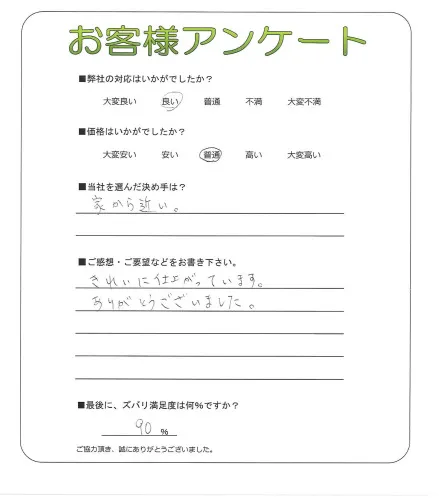 お客様アンケート
■弊社の対応はいかがでしたか？
大変良い 良い 普通 不満 大変不満
■価格はいかがでしたか？
大変安い 安い 普通 高い 大変高い
■当社を選んだ決め手は？
家から近い。
■ご感想・ご要望などをお書き下さい。
きれいに仕上がっています。
ありがとうございました。
■最後に、ズバリ満足度は何％ですか？
90 ％
ご協力頂き、誠にありがとうございました。